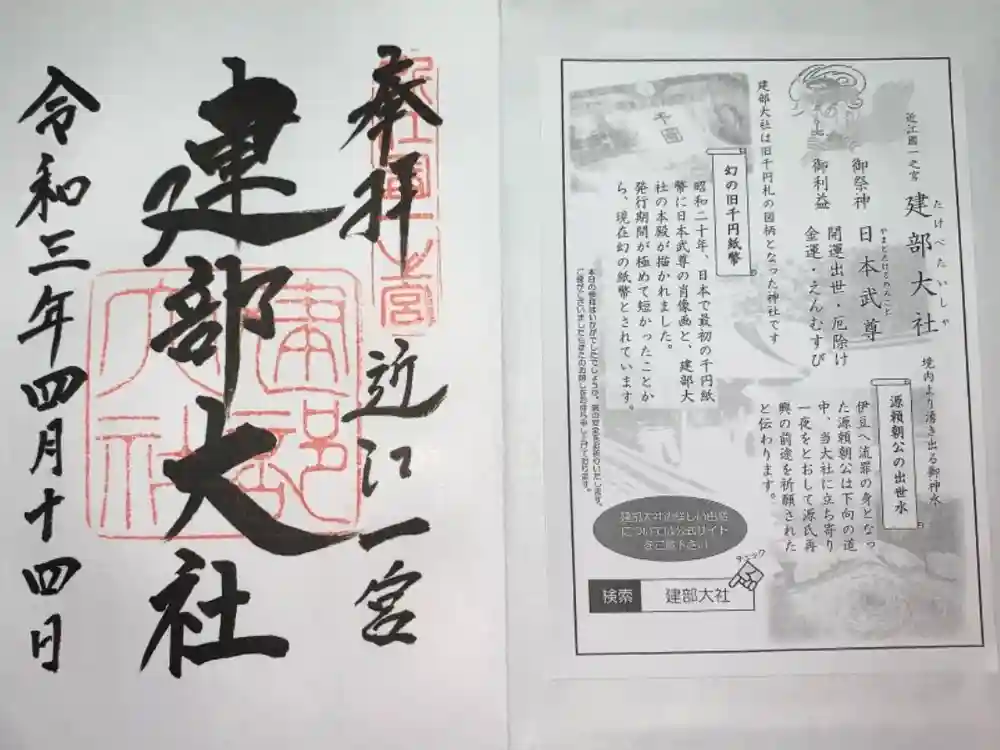 奉拝
近江一宮
建部大社
令和三年四月十四日
近江國一之宮
建部大社
たけべたいしゃ
御祭神 日本武尊
やまとたけるのみこと
御利益 開運出世・厄除け
金運・えんむすび
建部大社は旧千円札の図柄となった神社です
幻の旧千円紙幣
昭和二十年、日本で最初の千円紙
幣に日本武尊の肖像画と、建部大
社の本殿が描かれました。
発行期間が極めて短かったことか
ら、現在幻の紙幣とされています。
千圓
境内より湧き出る御神水
源頼朝公の出世水
伊豆へ流罪の身となっ
た源頼朝公は下向の道
中、当大社に立ち寄り
一夜をとおして源氏再
興の前途を祈願された
と伝わります。
建部大社の詳しい由緒
については公式サイト
をご覧下さい
チェック
検索 建部大社